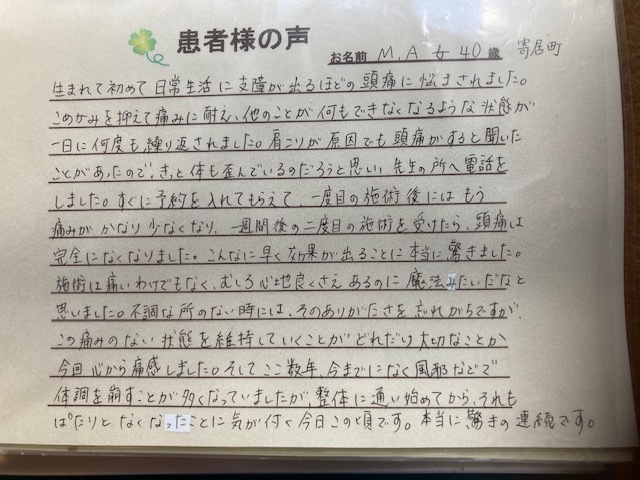 患者様の声
お名前 M.A 女 40 歳 寄居町
生まれて初めて日常生活に支障が出るほどの頭痛に悩まされました。
こめかみを抑えて痛みに耐え、他のことが何もできなくなるような状態が
一日に何度も繰り返されました。肩こりが原因でも頭痛がすると聞いた
ことがあったので、きっと体も歪んでいるのだろうと思い、先生の所へ電話を
しました。すぐに予約を入れてもらえて、一度目の施術後にはもう
痛みがかなり少なくなり、一週間後の二度目の施術を受けたら、頭痛は
完全になくなりました。こんなに早く効果が出ることに本当に驚きました。
施術は痛いわけでもなく、むしろ心地良くさえあるのに魔法みたいだなと
思いました。不調な所のない時には、そのありがたさを忘れがちですが、
この痛みのない状態を維持していくことがどれだけ大切なことか
今回心から痛感しました。そしてここ数年、今までになく風邪などで
体調を崩すことが多くなっていましたが、整体に通い始めてから、それも
ぱたりとなくなったことに気が付く今日この頃です。本当に驚きの連続です。